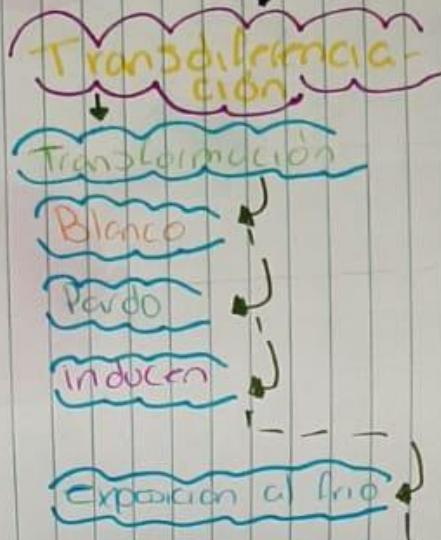 Transdiferencia-
ción
Transformación
Blanco
Pardo
inducen
Exposición al frio